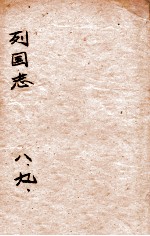 列国志
八、九、